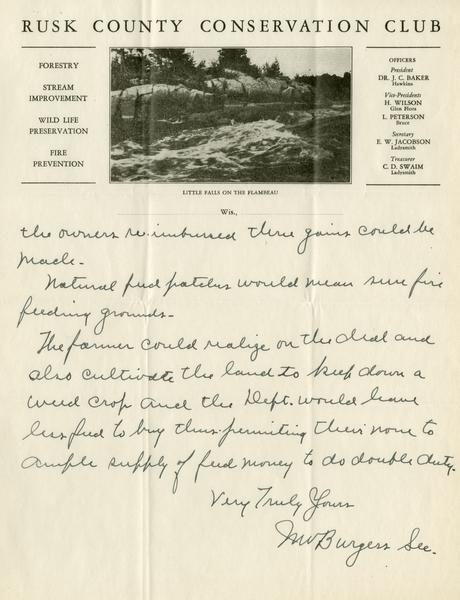 RUSK COUNTY CONSERVATION CLUB
FORESTRY
STREAM
IMPROVEMENT
WILD LIFE
PRESERVATION
FIRE
PREVENTION
LITTLE FALLS ON THE FLAMBEAU
OFFICERS
President
DR. J. C. BAKER
Hawkins
Vice-Presidents
H. WILSON
Glen Flora
L. PETERSON
Bruce
Secretary
E. W. JACOBSON
Ladysmith
Treasurer
C. D. SWAIM
Ladysmith
Wis.,
the owners re-imbursed there gains could be
made.
Natural feed patches would mean sure fire
feeding grounds.
The farmer could realize on the deal and
also cultivate the land to keep down a
weed crop and the Dept. would have
less feed to buy thus permiting their none to
ample supply of feed money to do double duty.
Very Truly Yours
MW Burgess Sec.